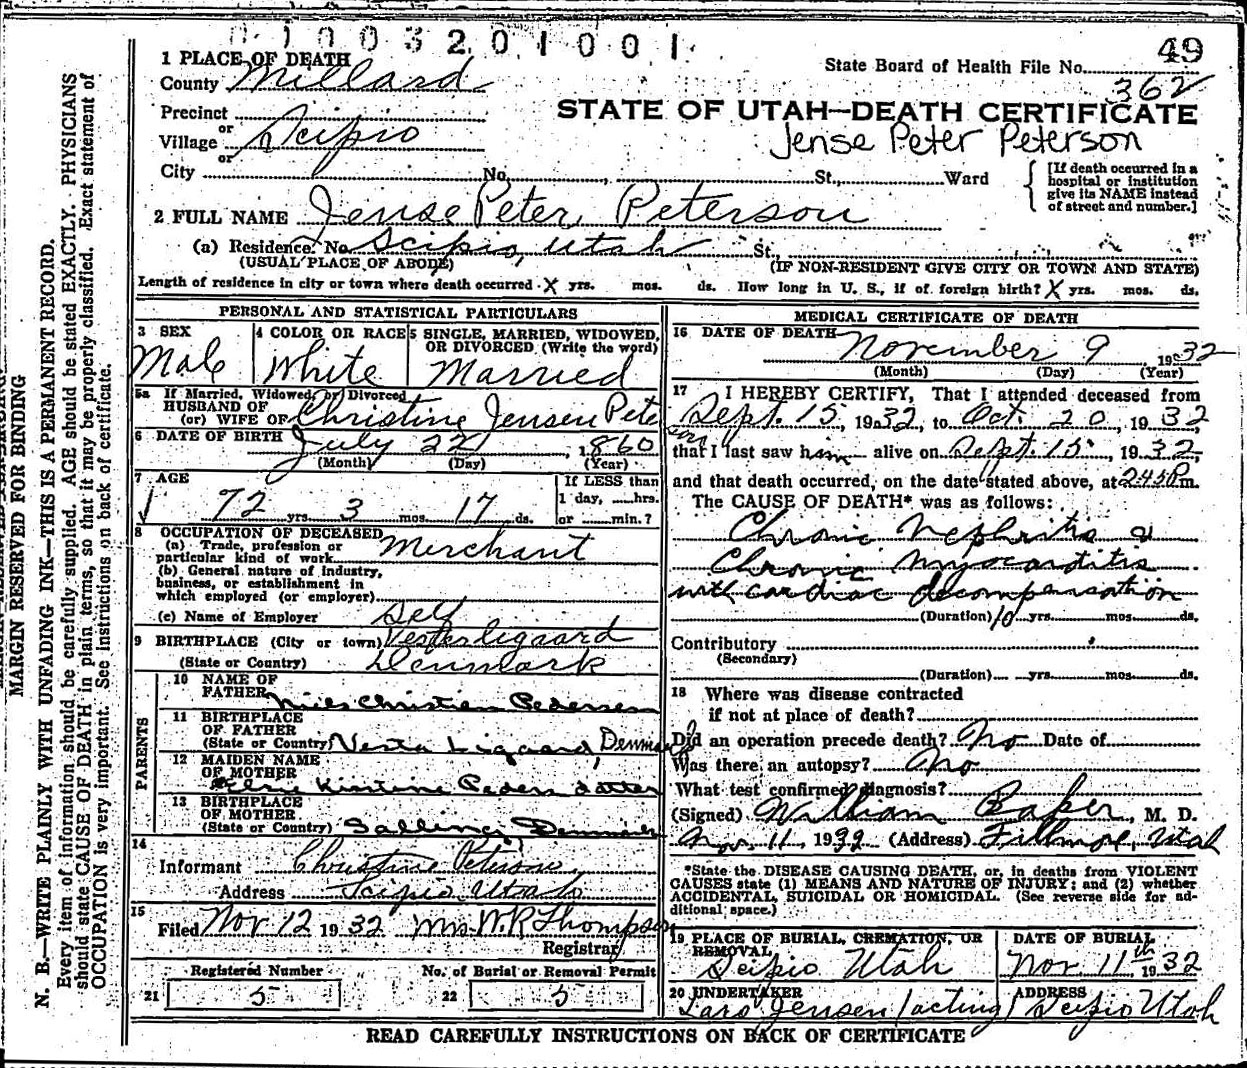 01003201001
49
1 PLACE OF DEATH
State Board of Health File No.
County Millard
362
STATE OF UTAH—DEATH CERTIFICATE
Precinct
or
Village Scipio
or
Jense Peter Peterson
City No. St., Ward
[If death occurred in a hospital or institution give its NAME instead of street and number.]
2 FULL NAME Jense Peter Peterson
(a) Residence. No. Scipio, Utah St.,
(USUAL PLACE OF ABODE) (IF NON-RESIDENT GIVE CITY OR TOWN AND STATE)
Length of residence in city or town where death occurred X yrs. mos. ds. How long in U. S., if of foreign birth? X yrs. mos. ds.
PERSONAL AND STATISTICAL PARTICULARS
3 SEX
Male
4 COLOR OR RACE
White
5 SINGLE, MARRIED, WIDOWED, OR DIVORCED (Write the word)
Married
5a If Married, Widowed, or Divorced
HUSBAND OF
(or) WIFE OF Christine Jensen Peterson
6 DATE OF BIRTH July 22, 1860
(Month) (Day) (Year)
7 AGE
72 yrs. 3 mos. 17 ds.
If LESS than
1 day, hrs.
or min.?
8 OCCUPATION OF DECEASED
(a) Trade, profession or
particular kind of work Merchant
(b) General nature of industry,
business, or establishment in
which employed (or employer)
(c) Name of Employer Self
9 BIRTHPLACE (City or town) Vesterligaard
(State or Country) Denmark
PARENTS
10 NAME OF
FATHER Niels Christian Pedersen
11 BIRTHPLACE
OF FATHER
(State or Country) Vesta Ligaard, Denmark
12 MAIDEN NAME
OF MOTHER
Else Kirstine Pedersdatter
13 BIRTHPLACE
OF MOTHER
(State or Country) Salling, Denmark
14
Informant Christine Peterson
Address Scipio Utah
15
Filed Nov 12 1932 Mrs. W.R. Thompson
Registrar
Registered Number No. of Burial or Removal Permit
21 5 22 5
MEDICAL CERTIFICATE OF DEATH
16 DATE OF DEATH
November 9 1932
(Month) (Day) (Year)
17 I HEREBY CERTIFY, That I attended deceased from
Sept. 15, 1932, to Oct. 20, 1932
that I last saw him alive on Sept. 15, 1932,
and that death occurred, on the date stated above, at 2:45 P.m.
The CAUSE OF DEATH* was as follows:
Chronic Nephritis &
Chronic Myocarditis
with cardiac decompensation
(Duration) 10 yrs. mos. ds.
Contributory
(Secondary)
(Duration) yrs. mos. ds.
18 Where was disease contracted
if not at place of death?
Did an operation precede death? No Date of
Was there an autopsy? No
What test confirmed diagnosis?
(Signed) William Baker, M. D.
Nov. 11, 1932 (Address) Fillmore, Utah
*State the DISEASE CAUSING DEATH, or, in deaths from VIOLENT
CAUSES state (1) MEANS AND NATURE OF INJURY; and (2) whether
ACCIDENTAL, SUICIDAL OR HOMICIDAL. (See reverse side for ad-
ditional space.)
19 PLACE OF BURIAL, CREMATION, OR
REMOVAL
Scipio Utah
DATE OF BURIAL
Nov. 11th 1932
20 UNDERTAKER
Lars Jensen (acting)
ADDRESS
Scipio Utah
READ CAREFULLY INSTRUCTIONS ON BACK OF CERTIFICATE
MARGIN RESERVED FOR BINDING
N. B.—WRITE PLAINLY WITH UNFADING INK—THIS IS A PERMANENT RECORD.
Every item of information should be carefully supplied. AGE should be stated EXACTLY. PHYSICIANS
should state CAUSE OF DEATH in plain terms, so that it may be properly classified. Exact statement of
OCCUPATION is very important. See instructions on back of certificate.